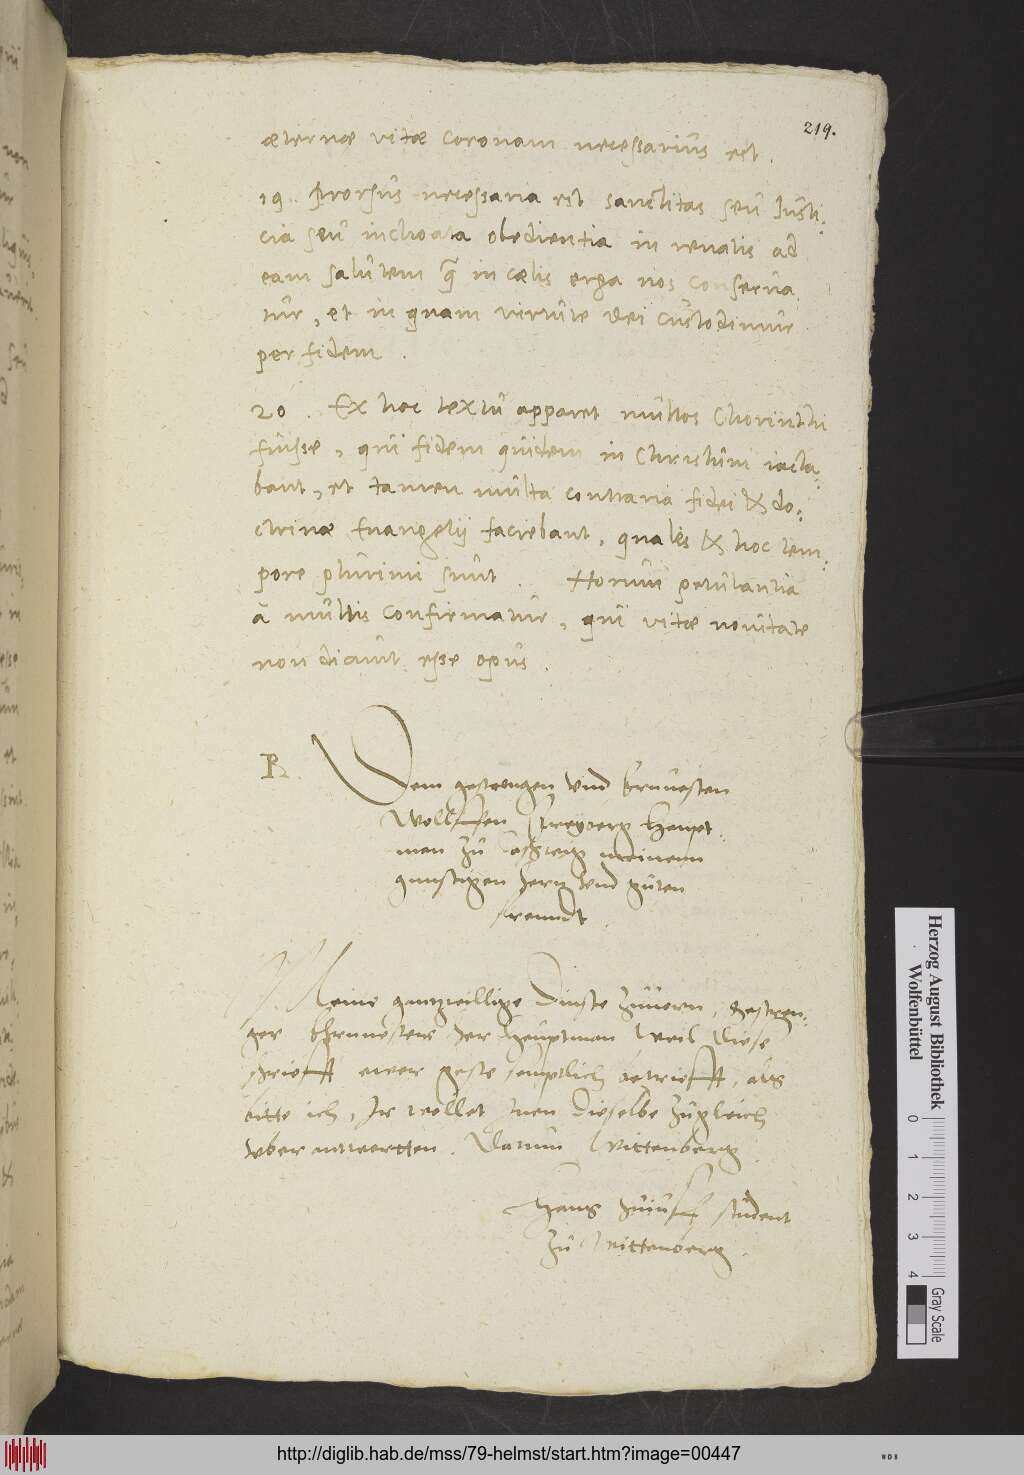 219.
æternæ vitæ coronam necessarius est.
19. Prorsus necessaria est sanctitas seu Justi-
cia seu inchoata obedientia in renatis ad
eam salutem q̃ in cælis erga nos conserva
tur, et in quam virtute dei custodimur
per fidem.
20. Ex hoc textu apparet multos Chorinthi
fuisse, qui fidem quidem in Christum iacta-
bant, et tamen multa contraria fidei & do-
ctrinæ Euangelij faciebant, quales & hoc tem-
pore plurimi sunt. Horum petulantia
a multis confirmatur, qui vitæ nouitate
non dicunt esse opus.
Dem gestrengen vnd Ernuesten
haupt
man zu meinem
gunstigen hern vnd guten
freundt.
Meine gantzwillige Dinste zuuorn, gestren-
ger Ehrnuester her heuptman weil diese
schrifft ewer geste semptlich betrifft, als
bitte ich, Ir wollet inen dieselbe zugleich
vberantwortten. Datum Wittenberg
Hans student
zu Wittenberg.
Herzog August Bibliothek
Wolfenbüttel
0 1 2 3 4
Gray Scale
http://diglib.hab.de/mss/79-helmst/start.htm?image=00447
WDB